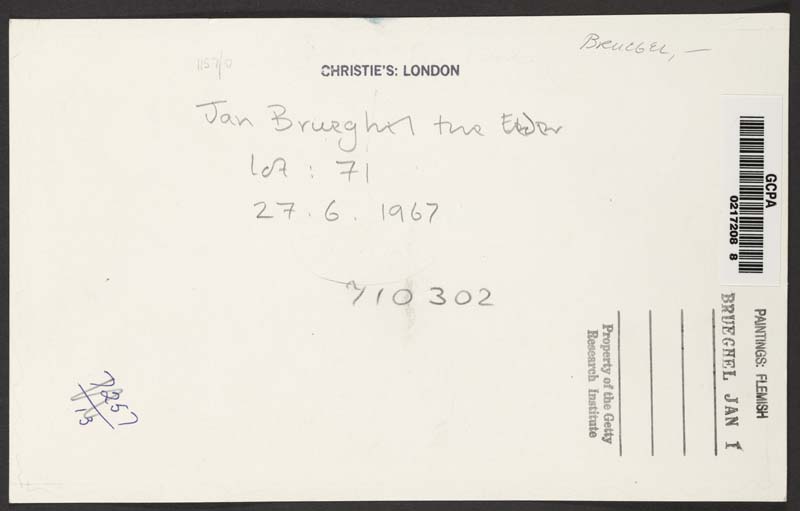 BRUEGEL, —
CHRISTIE'S: LONDON
Jan Brueghel the Elder
lot : 71
27 . 6 . 1967
710302
GCPA
0217208 8
PAINTINGS: FLEMISH
BRUEGHEL JAN I
Property of the Getty
Research Institute
7257
13